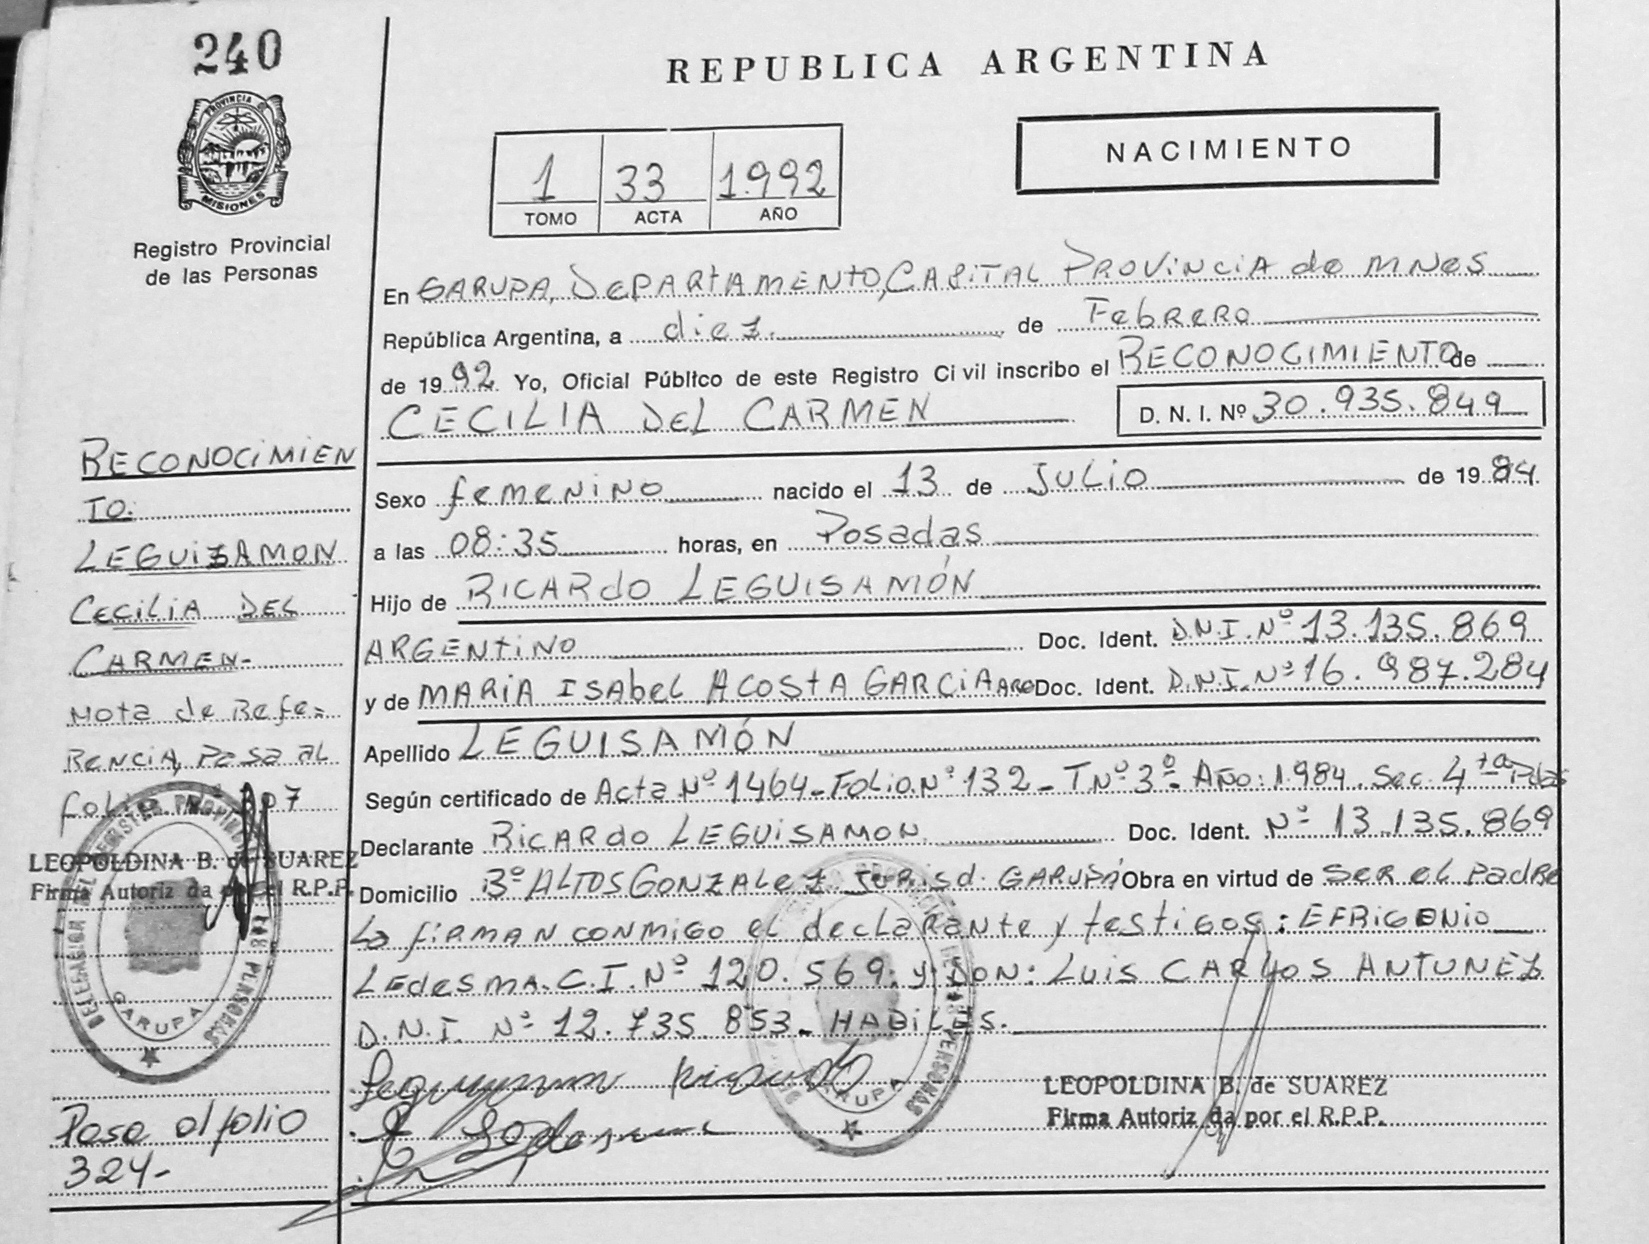 240
REPUBLICA ARGENTINA
PROVINCIA DE
MISIONES
Registro Provincial
de las Personas
1 33 1.992
TOMO ACTA AÑO
NACIMIENTO
En GARUPA, DEPARTAMENTO, CAPITAL PROVINCIA de MNES
República Argentina, a diez. de Febrero
de 1992 Yo, Oficial Público de este Registro Civil inscribo el RECONOCIMIENTO de
CECILIA DEL CARMEN D. N. I. Nº 30.935.849
Sexo femenino nacido el 13 de JULIO de 1984
a las 08:35 horas, en Posadas
Hijo de RICARDO LEGUISAMÓN
ARGENTINO Doc. Ident. D.N.I. Nº 13.135.869
y de MARIA ISABEL ACOSTA GARCIA ARG Doc. Ident. D.N.I. Nº 16.987.284
Apellido LEGUISAMÓN
Según certificado de Acta Nº 1464- FOLIO Nº 132- T Nº 3º- AÑO: 1.984. Sec. 4ta Pdas
Declarante RICARDO LEGUISAMON Doc. Ident. Nº 13.135.869
Domicilio Bº ALTOS GONZALEZ Jurisd. GARUPÁ Obra en virtud de SER el PADRE
FIRMAN CONMIGO el declarante y testigos: EFRIGENIO
LEDESMA. C.I. Nº 120.569. y DON: LUIS CARLOS ANTUNEZ
D.N.I. Nº 12.735.853- HABILES.
LEOPOLDINA B. de SUAREZ
Firma Autorizada por el R.P.P.
RECONOCIMIEN
TO:
LEGUIZAMON
CECILIA DEL
CARMEN-
Nota de Refe=
RENCIA, Pasa al
LEOPOLDINA B. de SUAREZ
Firma Autorizada por el R.P.P.
GARUPA
Pasa al folio
324-
GARUPA